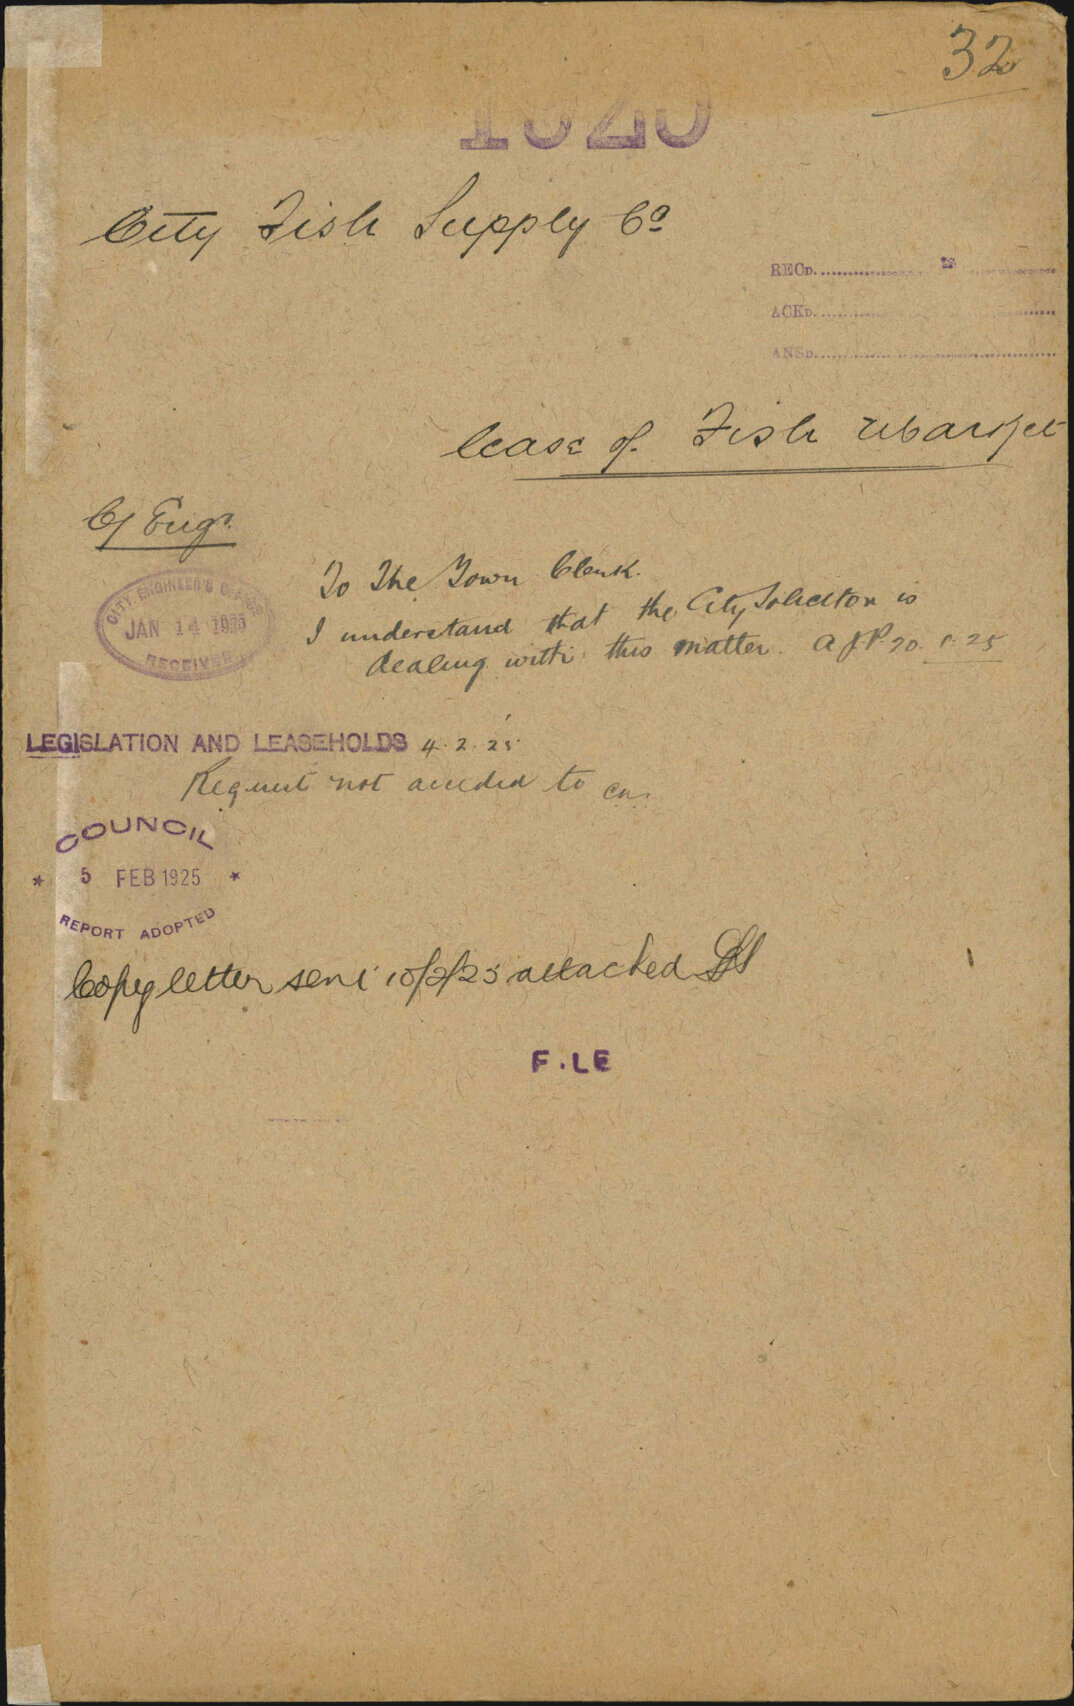 32
City Fish Supply Co
RECD.
ACKD.
ANSD.
Lease of Fish Market
Cy Engr.
CITY ENGINEER'S OFFICE
JAN 14 
RECEIVED
To The Town Clerk.
I understand that the City Solicitor is
dealing with this matter. AJP. 20. 1. 25
LEGISLATION AND LEASEHOLDS 4. 2. 25
Request not acceded to
COUNCIL
* 5 FEB 1925 *
REPORT ADOPTED
Copy letter sent 10/2/25 attached
F.LE